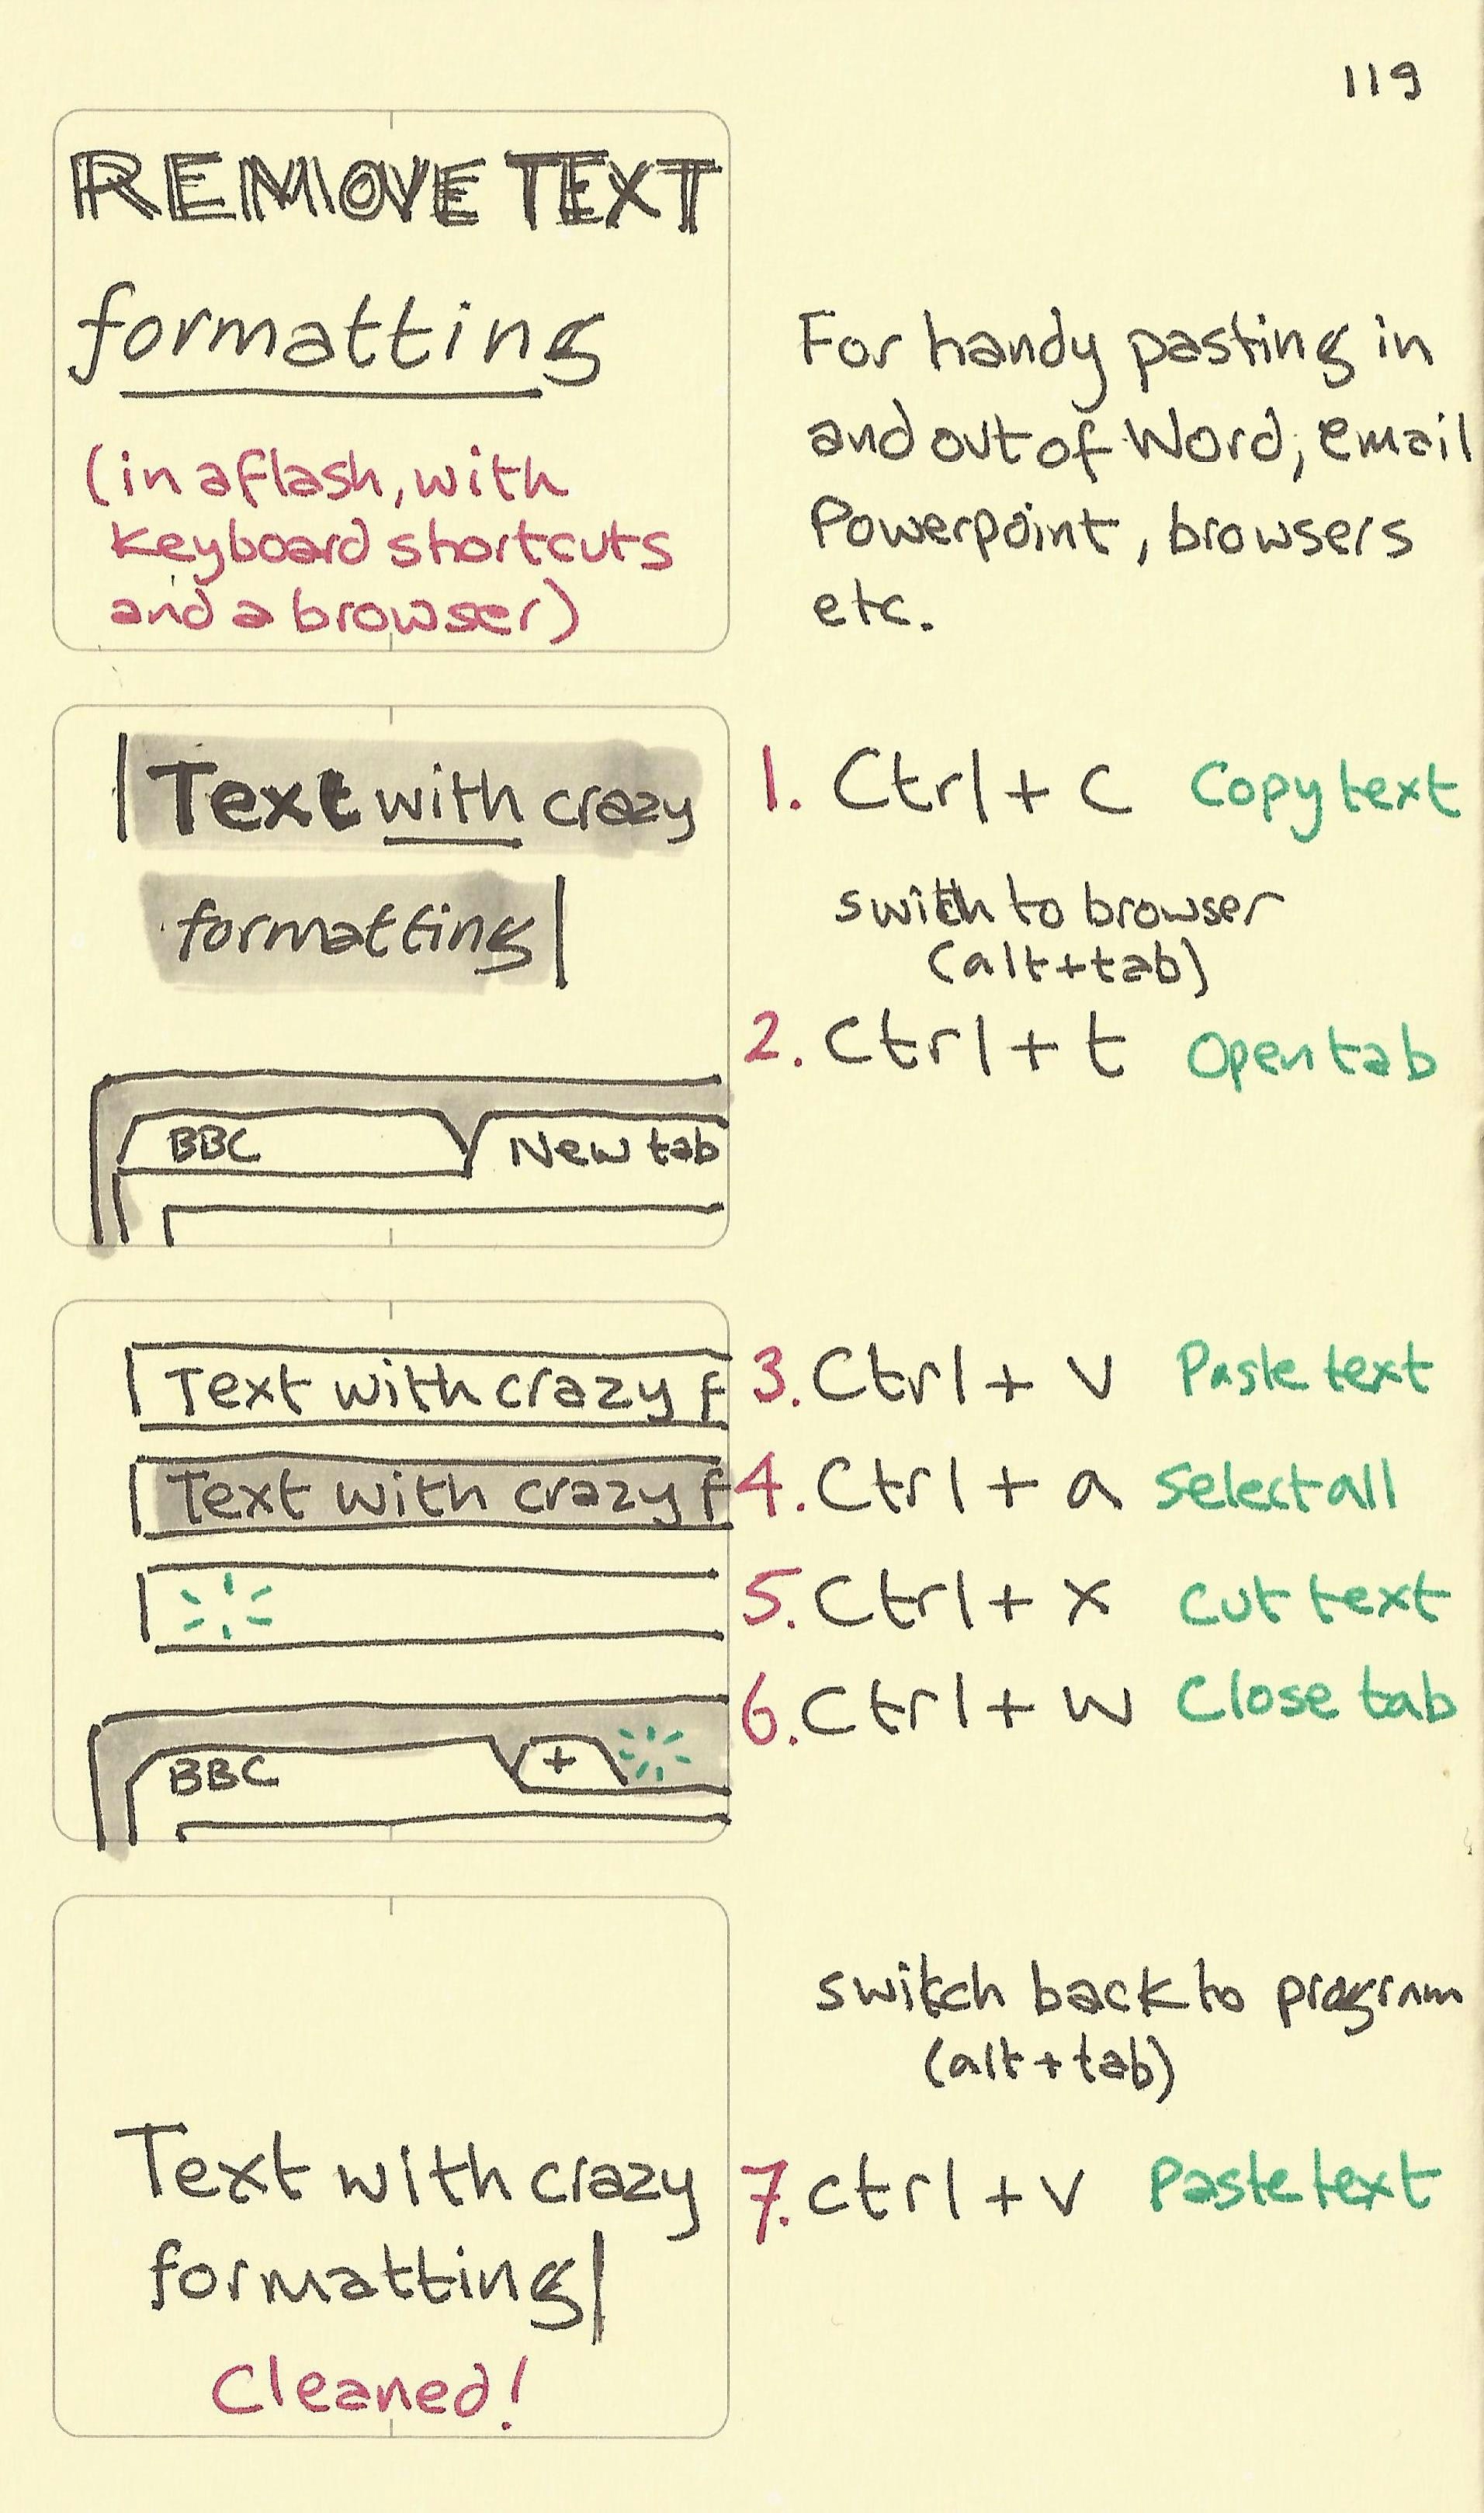 119
REMOVE TEXT
formatting
(in a flash, with
keyboard shortcuts
and a browser)
For handy pasting in
and out of Word, email
Powerpoint, browsers
etc.
Text with crazy
formatting
1. Ctrl + C Copy text
switch to browser
(alt+tab)
2. Ctrl + t Open tab
BBC New tab
Text with crazy f
3. Ctrl + v Paste text
Text with crazy f
4. Ctrl + a Select all
5. Ctrl + x Cut text
6. Ctrl + w Close tab
BBC +
switch back to program
(alt+tab)
Text with crazy
formatting
Cleaned!
7. ctrl + v Paste text